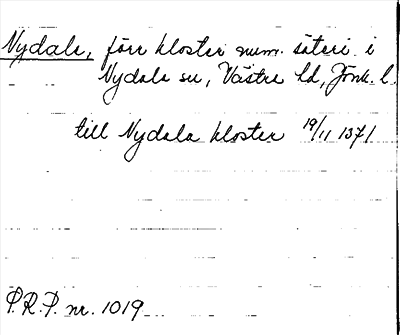 Nydala, förr kloster num. säteri i
Nydala sn, Västra hd, Jönk. l.
till Nydala kloster 19/11 1371
P.R.P. nr. 1019